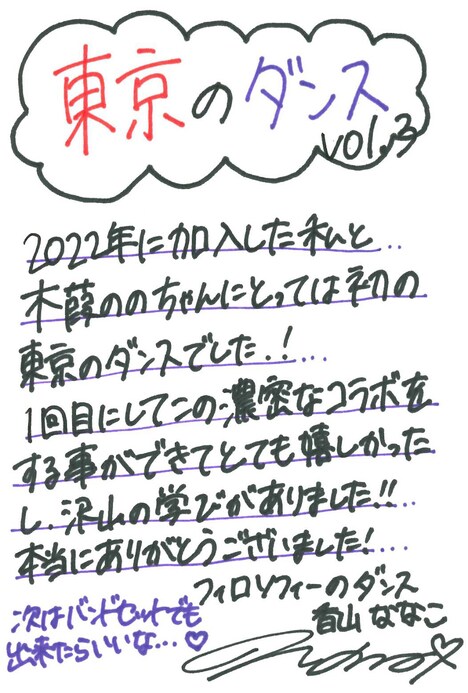 東京のダンス
vol.3
2022年に加入した私と‥
木葭ののちゃんにとっては初の
東京のダンスでした.!...
1回目にしてこの濃密なコラボを
する事ができてとても嬉しかった
し、沢山の学びがありました!!...
本当にありがとうございました!....
フィロソフィーのダンス
香山ななこ
次はバンドセットでも
出来たらいいな...♡